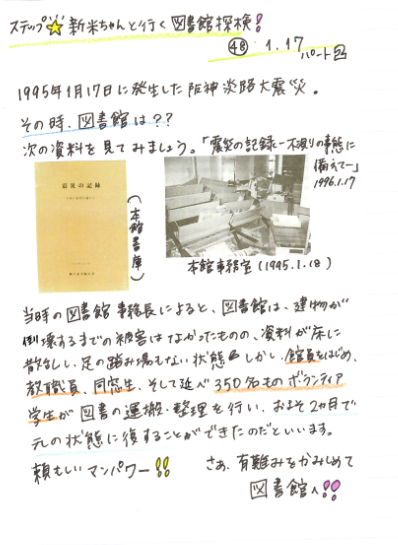 ステップ☆新米ちゃんと行く図書館探検!
㊽ 1.17 パート2
1995年1月17日に発生した阪神淡路大震災。
その時、図書館は??
次の資料を見てみましょう。「震災の記録-不測の事態に
備えて-」
1996.1.17
震災の記録
(本館書庫)
本館事務室(1995.1.18)
当時の図書館事務長によると、図書館は、建物が
倒壊するまでの被害はなかったものの、資料が床に
散乱し、足の踏み場もない状態。しかし、館員をはじめ、
教職員、同窓生、そして延べ350名ものボランティア
学生が図書の運搬・整理を行い、およそ2カ月で
元の状態に復することができたのだといいます。
頼もしいマンパワー!!
さぁ、有難みをかみしめて
図書館へ!!